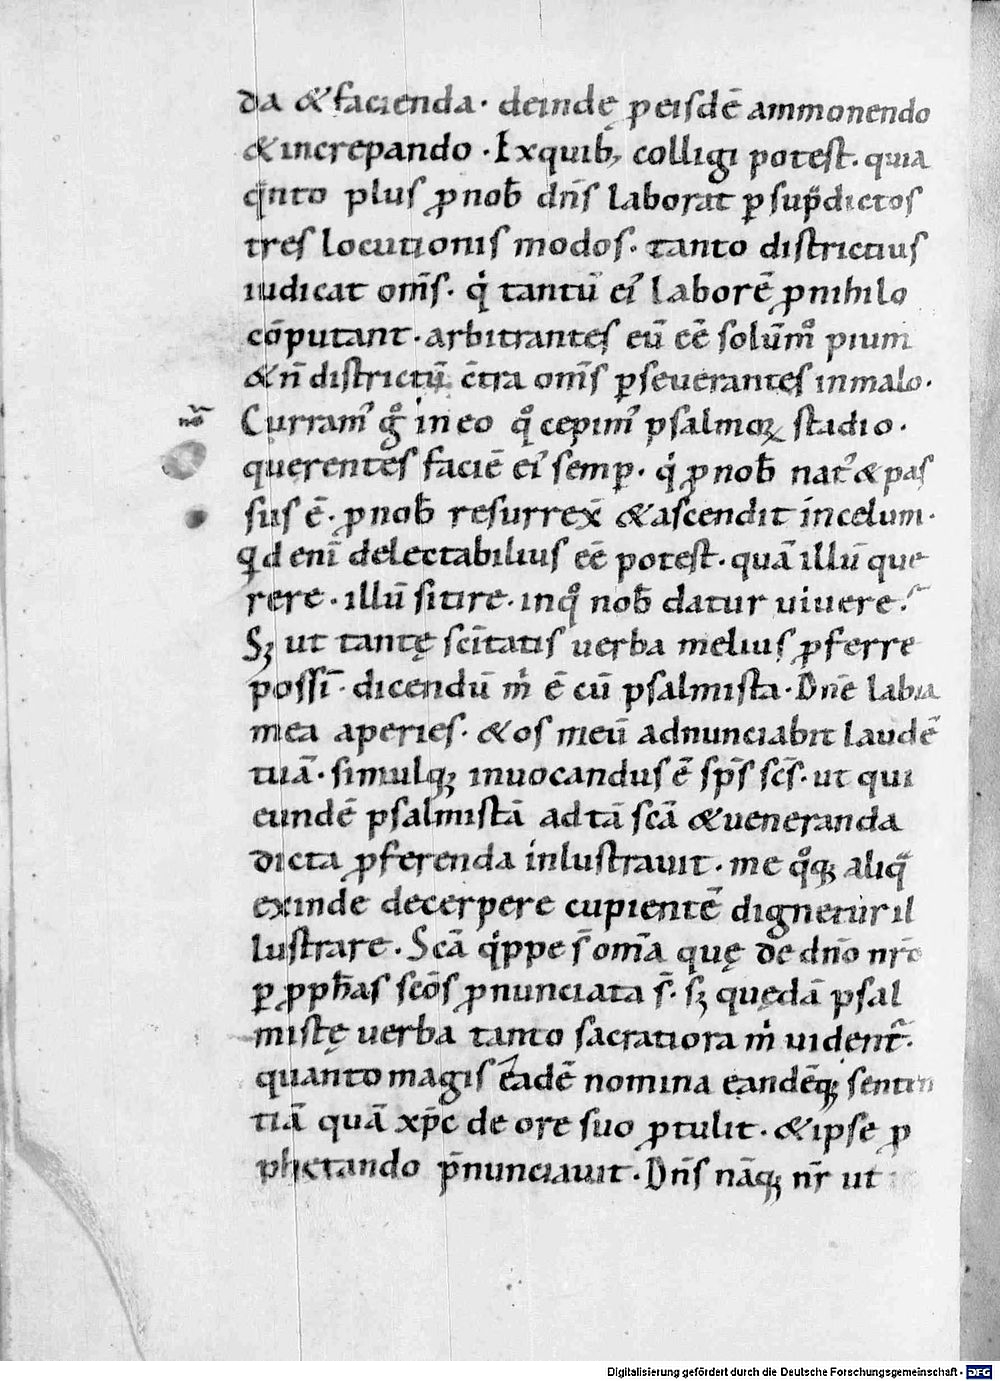 da & facienda· deindę ꝑ eisdē ammonendo
& increpando · Ex quib; colligi potest. quia
qͣnto plus ꝓ nob̄ dn̄s laborat ꝑ sup̄dictos
tres locutionis modos· tanto districtius
iudicat om̄s· qͥ tantū eiꝰ laborē ꝓ nihilo
cōputant · arbitrantes eū eē solūmͦ pium
& n̄ districtū c̄tra om̄s ꝑseuerantes in malo·
nō
Curramꝰ gͦ in eo qͦ cepimꝰ psalmoꝝ stadio·
querentes faciē eiꝰ semꝑ· qͥ ꝓ nob̄ natꝰ & pas
sus ē· ꝓ nob̄ resurrex̄ & ascendit in celum·
qͥd eni̅ delectabilius eē potest· quā illū que
rere · illū sitire · in qͦ nob̄ datur uiuere?
Sꝫ ut tantę sci̅tatis uerba melius ꝓferre
possi̅· dicendū mͥ ē cū psalmista· Dn̄e labia
mea aperies· & os meū adnunciabit laudē
tuā· simulqꝫ inuocandus ē sp̄s sc̄s· ut qui
eundē psalmistā ad tā scā & ueneranda
dicta ꝓferenda inlustrauit · me qͦqꝫ aliqͣ
exinde decerpere cupientē dignetur il
lustrare · Scā qͥppe s̄ om̄a quę de dn̄o nr̄o
ꝑ ꝓph̄as scōs ꝓnunciata s̄· sꝫ quędā psal
mistę uerba tanto sacratiora mͥ uidentᷣ·
quanto magis eadē nomina eandēqꝫ senten
tiā quā xp̄c de ore suo ꝓtulit · & ipse ꝓ
phetando p̄nunciauit · Dn̄s nāqꝫ nr̄ ut
Digitalisierung gefördert durch die Deutsche Forschungsgemeinschaft · DFG